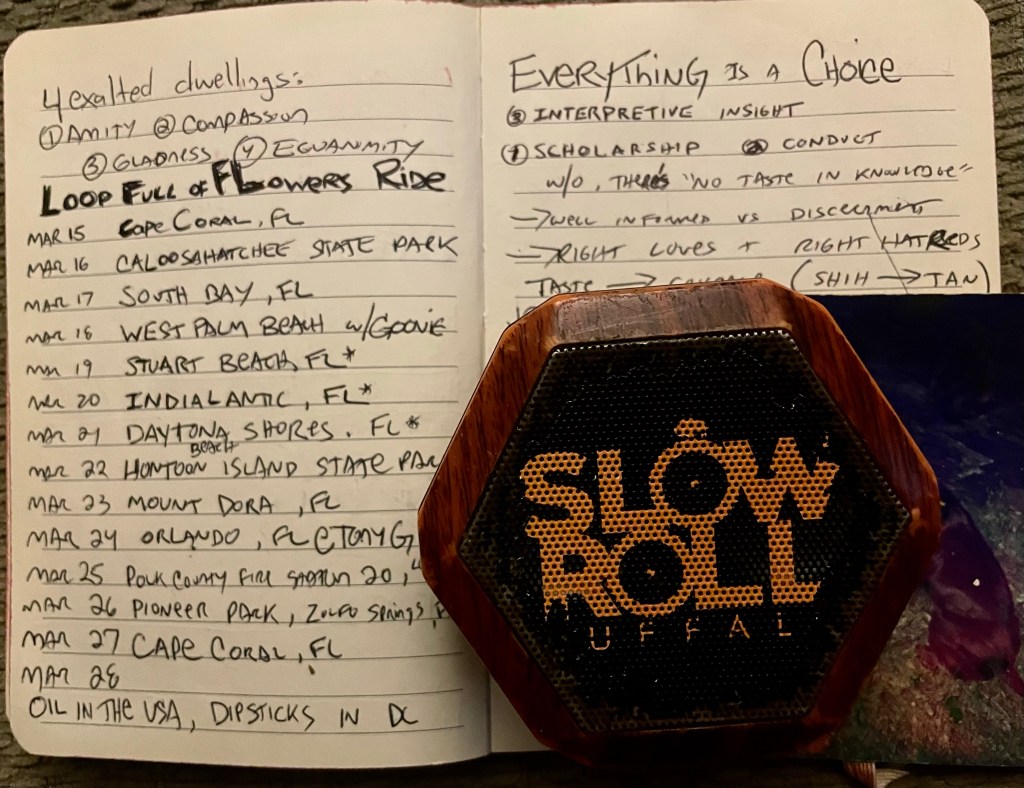 4 exalted dwellings:
① AMITY ② COMPASSION
③ GLADNESS ④ EQUANMITY
LOOP FULL OF FLOWERS RIDE
MAR 15 CAPE CORAL, FL
MAR 16 CALOOSAHATCHEE STATE PARK
MAR 17 SOUTH BAY, FL
MAR 18 WEST PALM BEACH w/GOONIE
MAR 19 STUART BEACH, FL*
MAR 20 INDIALANTIC, FL*
MAR 21 DAYTONA SHORES. FL*
BEACH
MAR 22 HONTOON ISLAND STATE PAR
MAR 23 MOUNT DORA, FL
MAR 24 ORLANDO, FL @ TONY G
MAR 25 POLK COUNTY FIRE STATION 20,
MAR 26 PIONEER PARK, ZOLFO SPRINGS,
MAR 27 CAPE CORAL, FL
MAR 28
OIL IN THE USA, DIPSTICKS IN DC
EVERYTHING IS A CHOICE
③ INTERPRETIVE INSIGHT
① SCHOLARSHIP ② CONDUCT
W/O, THERE'S "NO TASTE IN KNOWLEDGE"
→ WELL INFORMED VS DISCERNMENT
→ RIGHT LOVES + RIGHT HATREDS
TASTE → (SHIH → TAN)
SLOW
ROLL
UFFAL